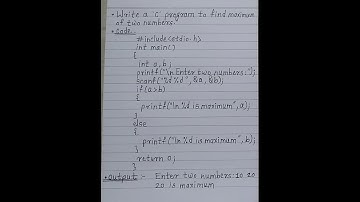 • Write a C program to find maximum
of two numbers.
• Code
#include<stdio.h>
int main()
{
int a, b;
printf("\n Enter two numbers:");
scanf("%d%d", &a, &b);
if(a>b)
{
printf("\n %d is maximum", a);
}
else
{
printf("\n %d is maximum", b);
}
return 0;
}
• output :- Enter two numbers: 10 20
20 is maximum